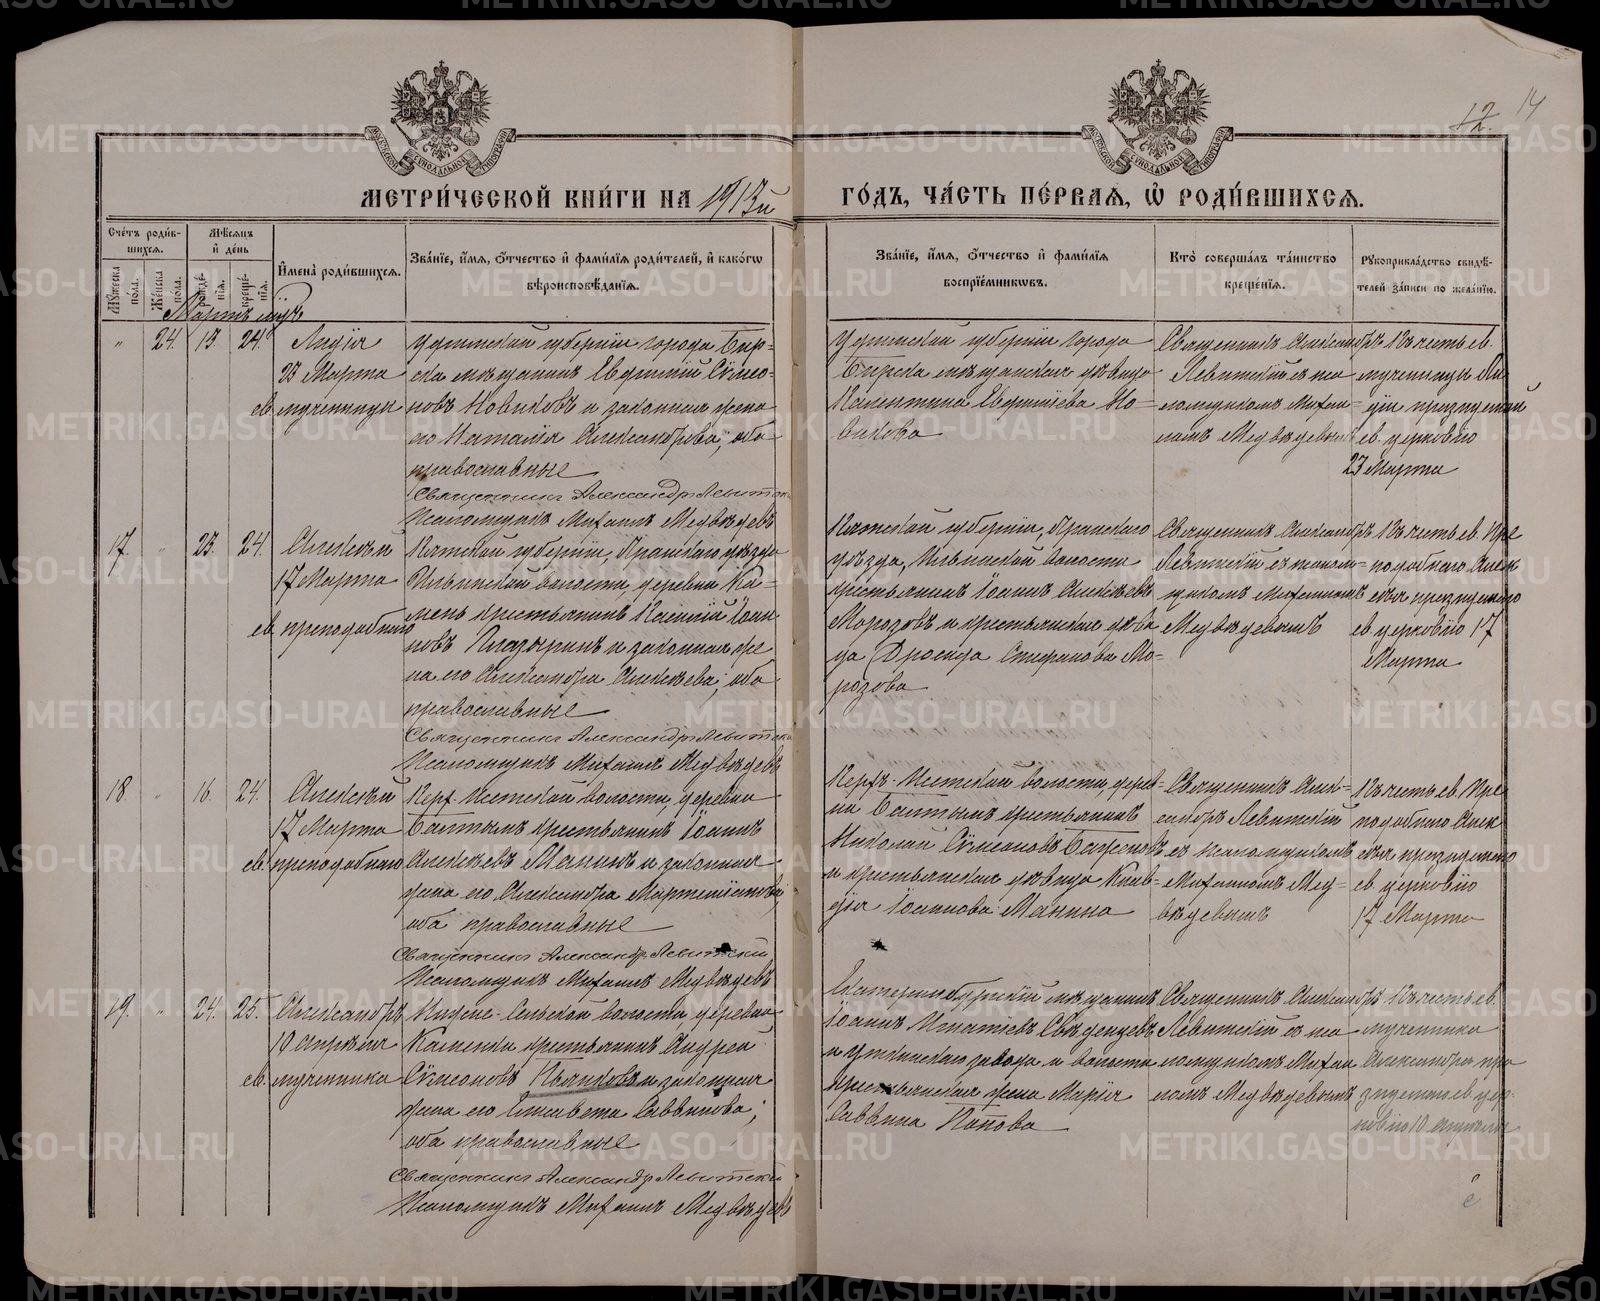 12. 14
МЕТРИ́ЧЕСКОЙ КНИ́ГИ НА 1913й ГО́ДЪ, ЧА́СТЬ ПЕ́РВАЯ, Ѡ҆ РОДИ́ВШИХСЯ.
Сче́тъ роди́в-
шихся.
Му́жеска пола.
Же́нска пола.
Мѣ́сяцъ
и҆ де́нь
роде́-
нїя.
креще́-
нїя.
И҆мена̀ роди́вшихся.
Зва́нїе, и҆́мя, ѻ҆́тчество и҆ фами́лїя роди́телей, и҆ како́гѡ
вѣроисповѣ́данїя.
Зва́нїе, и҆́мя, ѻ҆́тчество и҆ фами́лїя
воспрїе́мниковъ.
Кто̀ соверша́лъ та́инство
креще́нїя.
Рꙋкоприкла́дство свидѣ́-
телей за́писи по жела́нїю.
Мартъ
„ 24. 13. 24.
Лидія
23 Марта
св. мученицы
Уфимской губерніи города Бир-
ска мѣщанинъ Евфимій Сѵмео-
новъ Новиковъ и законная жена
его Наталія Александрова; оба
православные
Священникъ Александръ Левитскі
Псаломщикъ Михаилъ Медвѣдевъ
Уфимской губерніи города
Бирска мѣщанская дѣвица
Валентина Евфиміева Но-
викова
Священникъ Александръ
Левитскій съ пса-
ломщикомъ Михаи-
ломъ Медвѣдевымъ
Въ честь св.
мученицы Ли-
діи празднуемой
св. церковію
23 Марта
17. „ 23. 24.
Алексѣй
17 Марта
св. преподобнаго
Вятской губерніи, Яранскаго уѣзда
Ильинской волости, деревни Ка-
мень крестьянинъ Іоан-
новъ и законная же-
на его Александра Алексѣева; оба
православные
Священникъ Александръ Левитскі
Псаломщикъ Михаилъ Медвѣдевъ
Вятской губерніи, Яранскаго
уѣзда, Ильинской волости
крестьянинъ Іоаннъ Алексѣевъ
Морозовъ и крестьянская дѣви-
ца Дросида Стефанова Мо-
розова
Священникъ Александръ
Левитскій съ псалом-
щикомъ Михаиломъ
Медвѣдевымъ
Въ честь св. Пре-
подобнаго Алек-
сѣя празднуемаго
св. церковію 17
Марта
18. „ 16. 24.
Алексѣй
17 Марта
св. преподобнаго
Верх-Исетской волости, деревни
крестьянинъ Іоаннъ
Алексѣевъ Манинъ и законная
жена его Александра Мартеміанова;
оба православные
Священникъ Александръ Левитскій
Псаломщикъ Михаилъ Медвѣдевъ
Верхъ-Исетской волости, дерев-
ни крестьянинъ
Николай Сѵмеоновъ
и крестьянская дѣвица Клав-
дія Іоаннова Манина
Священникъ Алек-
сандръ Левитскій
съ псаломщикомъ
Михаиломъ Мед-
вѣдевымъ
Въ честь св. Пре-
подобнаго Алек-
сѣя празднуемаго
св. церковію
17 Марта
19. „ 24. 25.
Александръ
10 апрѣля
св. мученика
Нижне-Сельской волости, деревни
Каменки крестьянинъ Андрей
Сѵмеоновъ Пьянковъ и законная
жена его Елисавета Саввинова;
оба православные
Священникъ Александръ Левитскі
Псаломщикъ Михаилъ Медвѣдевъ
Екатеринбургскій мѣщанинъ
Іоаннъ Игнатіевъ
и Уткинскаго завода и волости
крестьянская жена Марія
Саввина Попова
Священникъ Александръ
Левитскій съ пса-
ломщикомъ Михаи-
ломъ Медвѣдевымъ
Въ честь св.
мученика
Александра пра-
зднуемаго св. цер-
ковію 10 апрѣля
METRIKI.GASO-URAL.RU